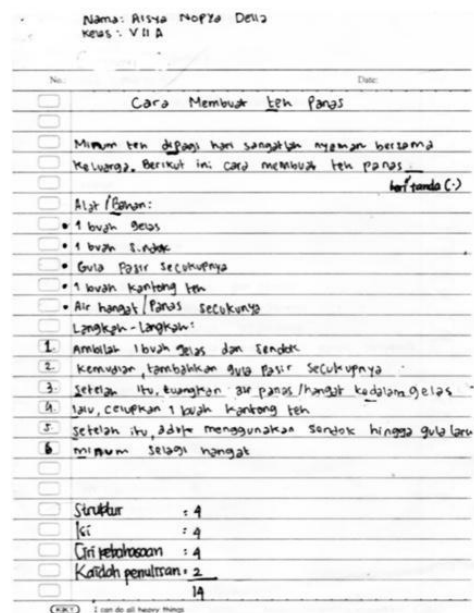 Nama: Aisya Nopya Della
Kelas: VII A
No.: Date:
Cara Membuat teh Panas
Minum teh dipagi hari sangatlah nyaman bersama
Keluarga. Berikut ini cara membuat teh panas
beri tanda (.)
Alat / Bahan:
• 1 buah gelas
• 1 buah Sendok
• Gula Pasir secukupnya
• 1 buah kantong teh
• Air hangat / Panas secukunya
Langkah-Langkah:
1. Ambilah 1 buah gelas dan sendok
2. Kemudian, tambahkan gula pasir secukupnya
3. Setelah itu, tuangkan air panas/hangat kedalam gelas
4. lalu, celupkan 1 buah kantong teh
5. Setelah itu, aduk menggunakan sendok hingga gula laru
6. minum selagi hangat
Struktur : 4
Isi : 4
Ciri kebahasaan : 4
Kaidah penulisan : 2
14
I can do all heavy things